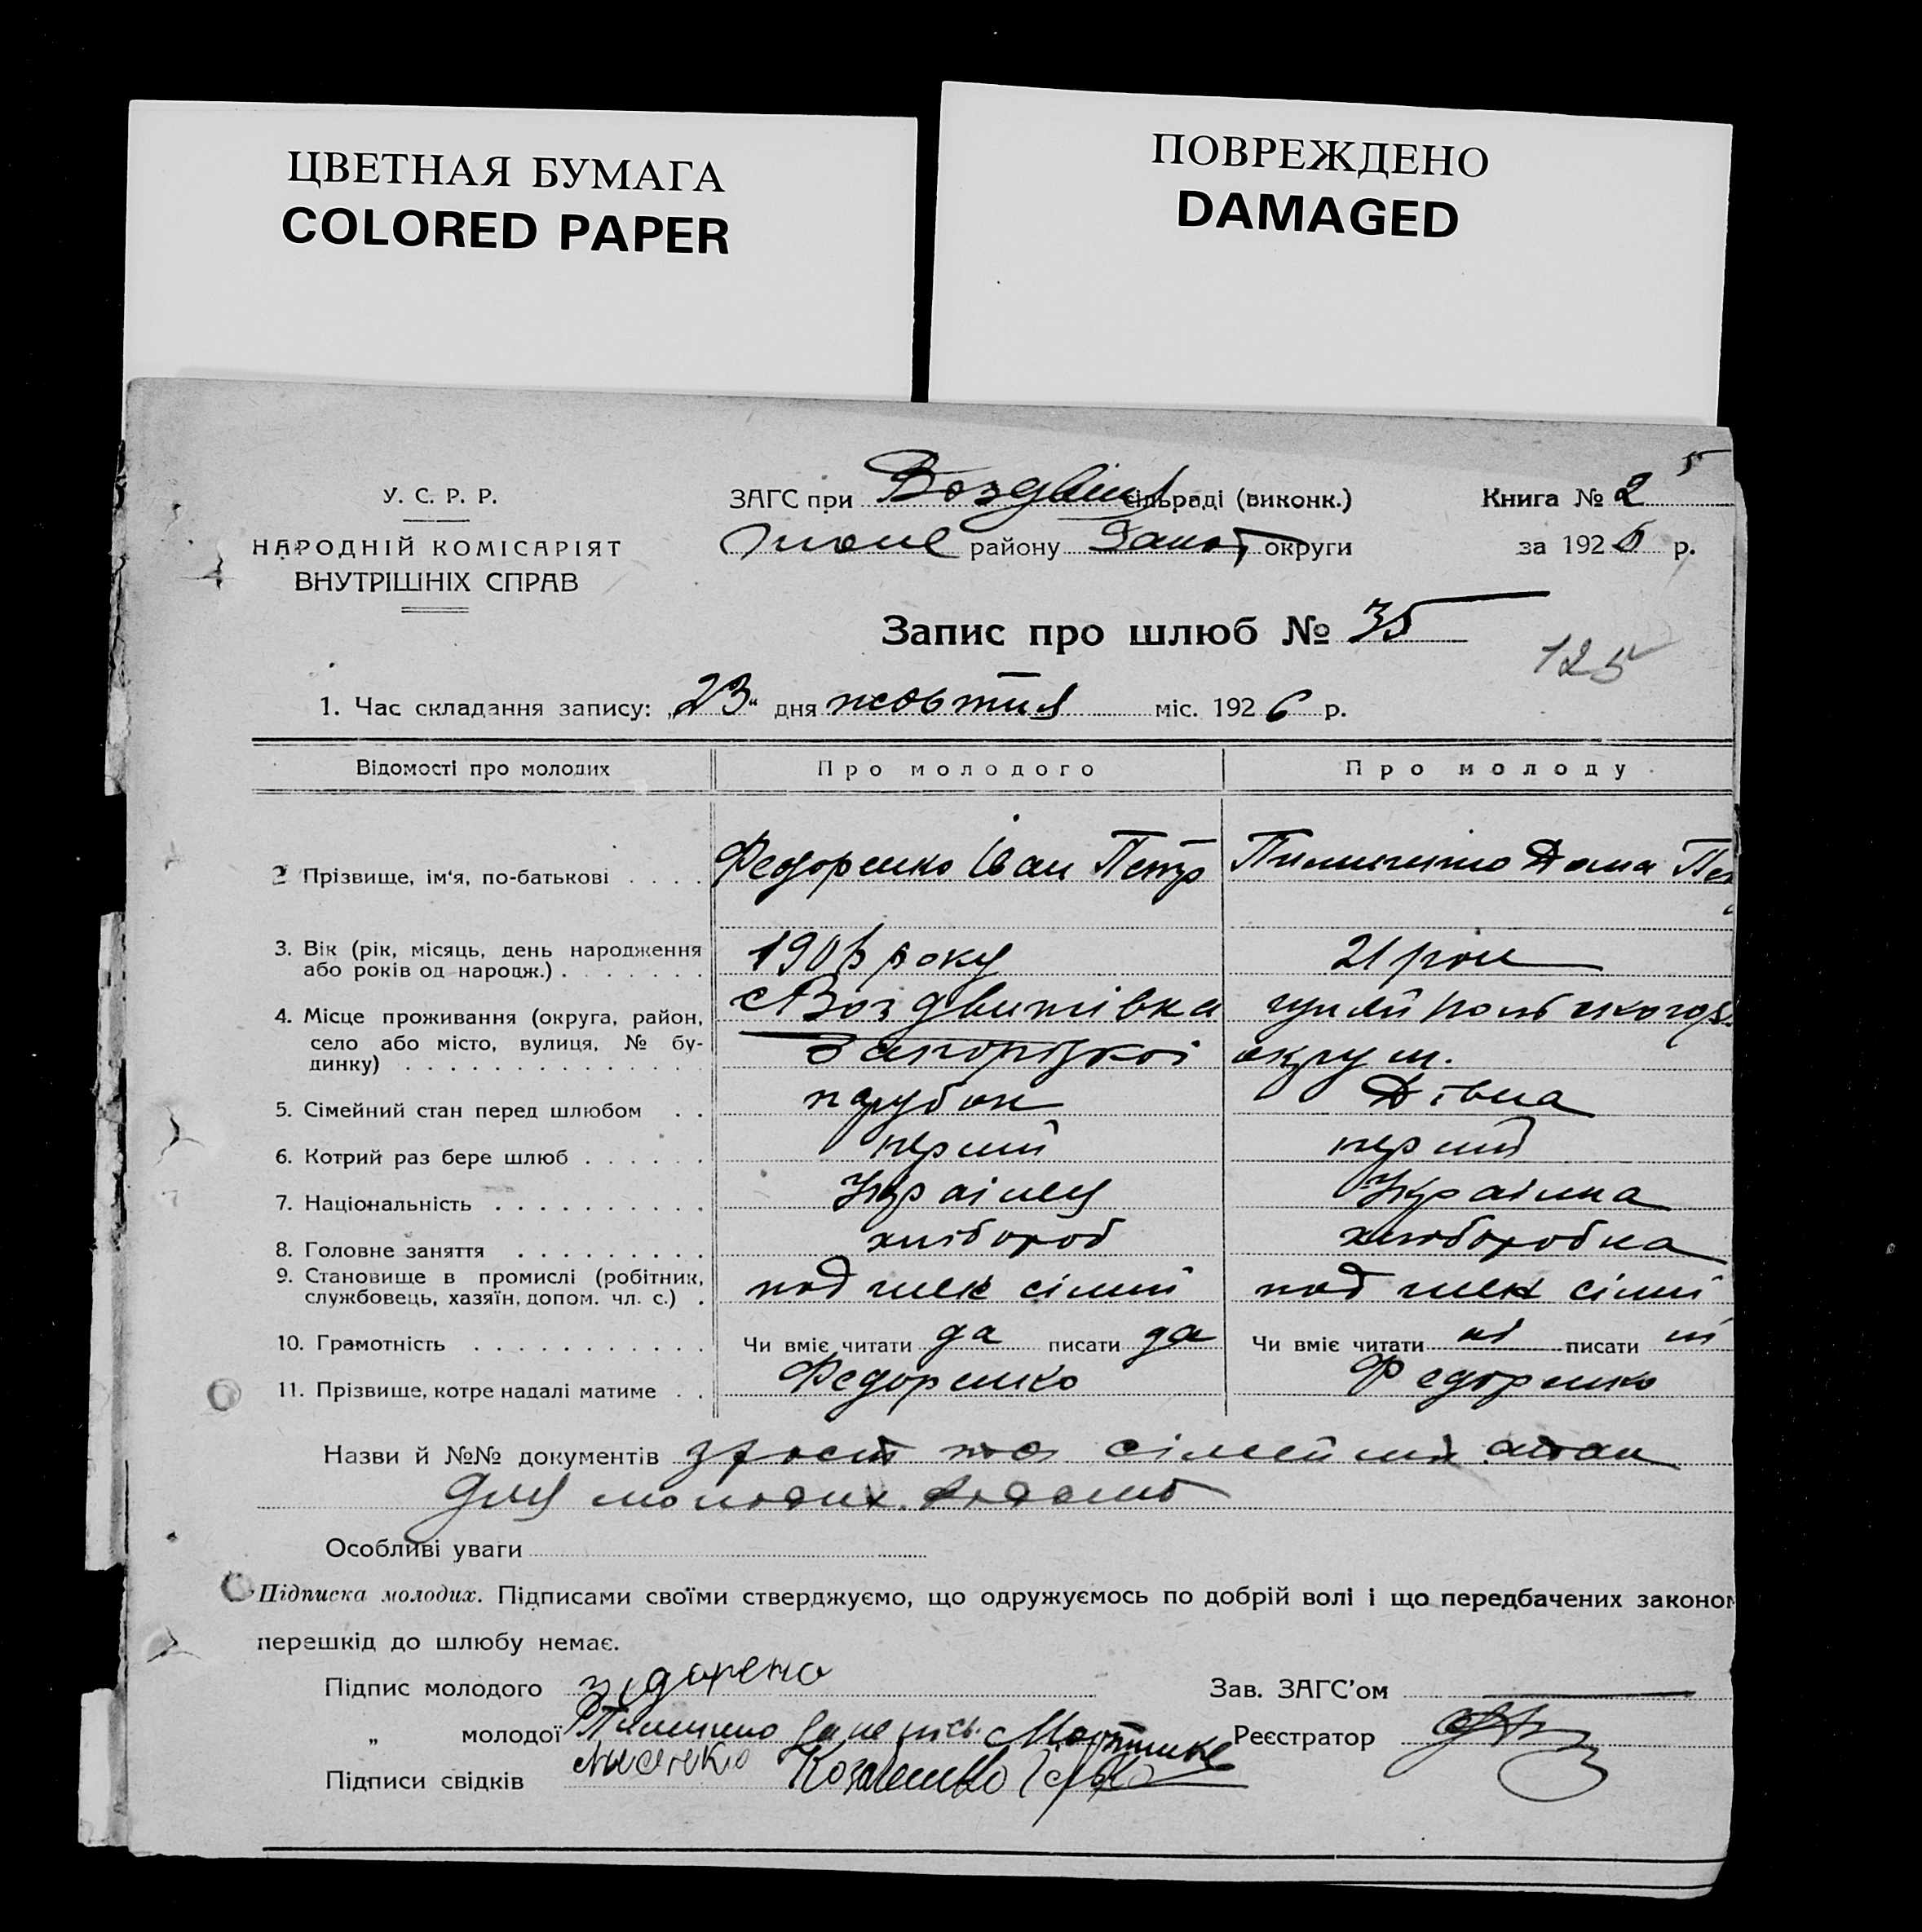 ЦВЕТНАЯ БУМАГА
COLORED PAPER
ПОВРЕЖДЕНО
DAMAGED
5
У. С. Р. Р.
НАРОДНІЙ КОМІСАРІЯТ
ВНУТРІШНІХ СПРАВ
ЗАГС при Воздвиж сільраді (виконк.)
району Запор округи
Книга № 2
за 1926 р.
Запис про шлюб № 35
125
1. Час складання запису: „23“ дня жовтня міс. 1926 р.
Відомості про молодих Про молодого Про молоду
2 Прізвище, ім'я, по-батькові . . . . Федоренко Іван Петр Дома Пет
3. Вік (рік, місяць, день народження
або років од народж.) . . . . . . . року 21 рік
4. Місце проживання (округа, район, с Воздвижівка гуляйпольського р.
село або місто, вулиця, № бу-
динку) . . . . . . . . . . . . . . Запорізкоі округи.
5. Сімейний стан перед шлюбом . . парубок Дівка
6. Котрий раз бере шлюб . . . . . . перший перший
7. Національність . . . . . . . . . . Українец Українка
8. Головне заняття . . . . . . . . . хлібороб хліборобка
9. Становище в промислі (робітник,
службовець, хазяїн, допом. чл. с.) . под члек сімії под члек сімії
10. Грамотність . . . . . . . . . . . Чи вміє читати да писати да Чи вміє читати ні писати ні
11. Прізвище, котре надалі матиме . . Федоренко Федоренко
Назви й №№ документів зрост та сімейний стан
для молодих
Особливі уваги
Підписка молодих. Підписами своїми стверджуємо, що одружуємось по добрій волі і що передбачених законом
перешкід до шлюбу немає.
Підпис молодого
Зав. ЗАГС'ом
„ молодої
Реєстратор
Підписи свідків Коваленко